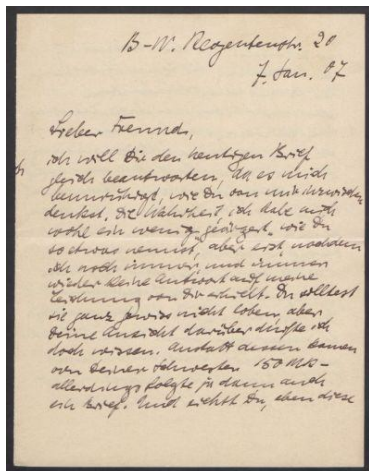 B-W. Regentenstr. 20
7. Jan. 07
Lieber Freund,
ich will Dir den heutigen Brief
gleich beantworten, da es mich
beunruhigt, wie Du von mir inzwischen
denkst. Die Wahrheit, ich habe mich
wohl ein wenig geärgert, wie Du
so etwas nennst, aber erst, nachdem
ich noch immer und immer
wieder keine Antwort auf meine
Zeichnung von Dir erhielt. Du solltest
sie ganz gewiss nicht loben, aber
Deine Ansicht darüber dürfte ich
doch wissen. Anstatt dessen kamen
von Deiner Schwester 150 Mk -
allerdings folgte ja dann auch
ein Brief. Und siehst Du, eben diese